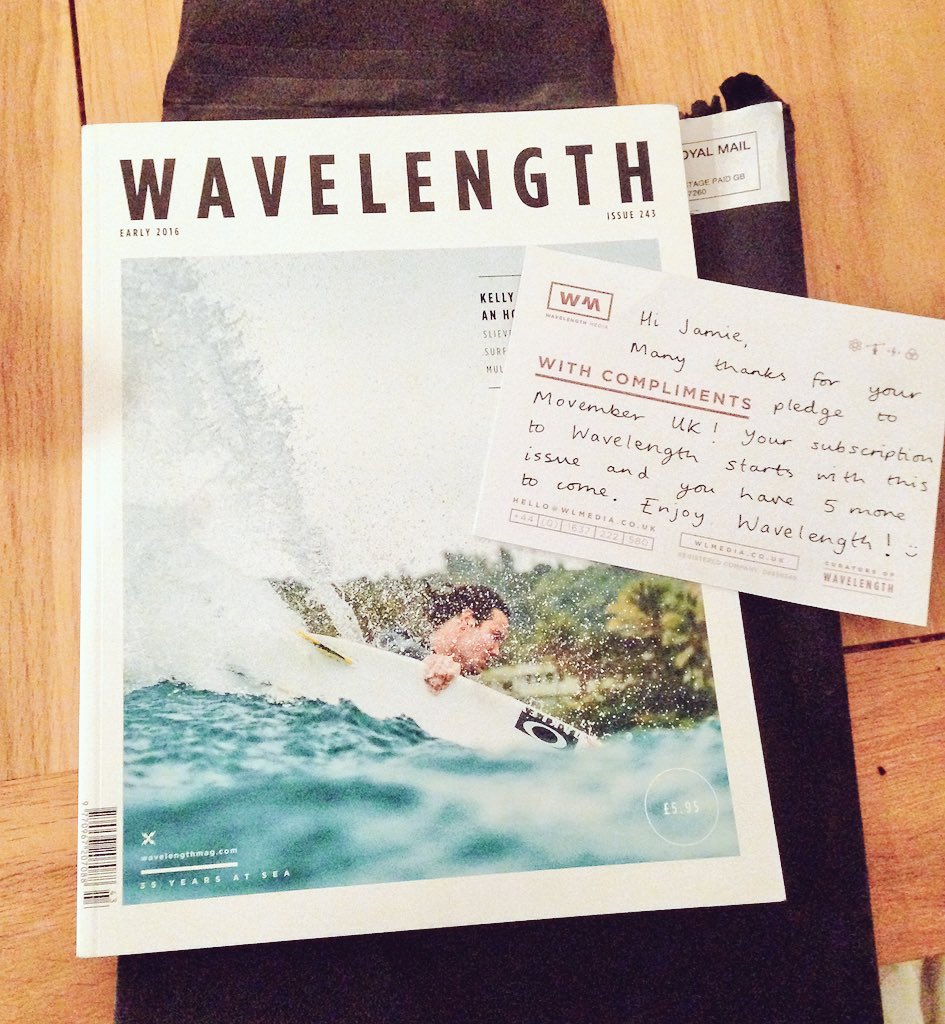 WAVELENGTH
EARLY 2016
ISSUE 243
KELLY
AN HO
SLIEV
SURF
MUL
£5.95
wavelengthmag.com
35 YEARS AT SEA
9 770967 207088
43
OYAL MAIL
TAGE PAID GB
7260
WM
WAVELENGTH MEDIA
Hi Jamie,
Many thanks for your
WITH COMPLIMENTS pledge to
Movember UK! Your subscription
to Wavelength starts with this
issue and you have 5 more
to come. Enjoy Wavelength!
HELLO@WLMEDIA.CO.UK
+44 (0) 1637 222 580
WLMEDIA.CO.UK
REGISTERED COMPANY:
CURATORS OF
WAVELENGTH